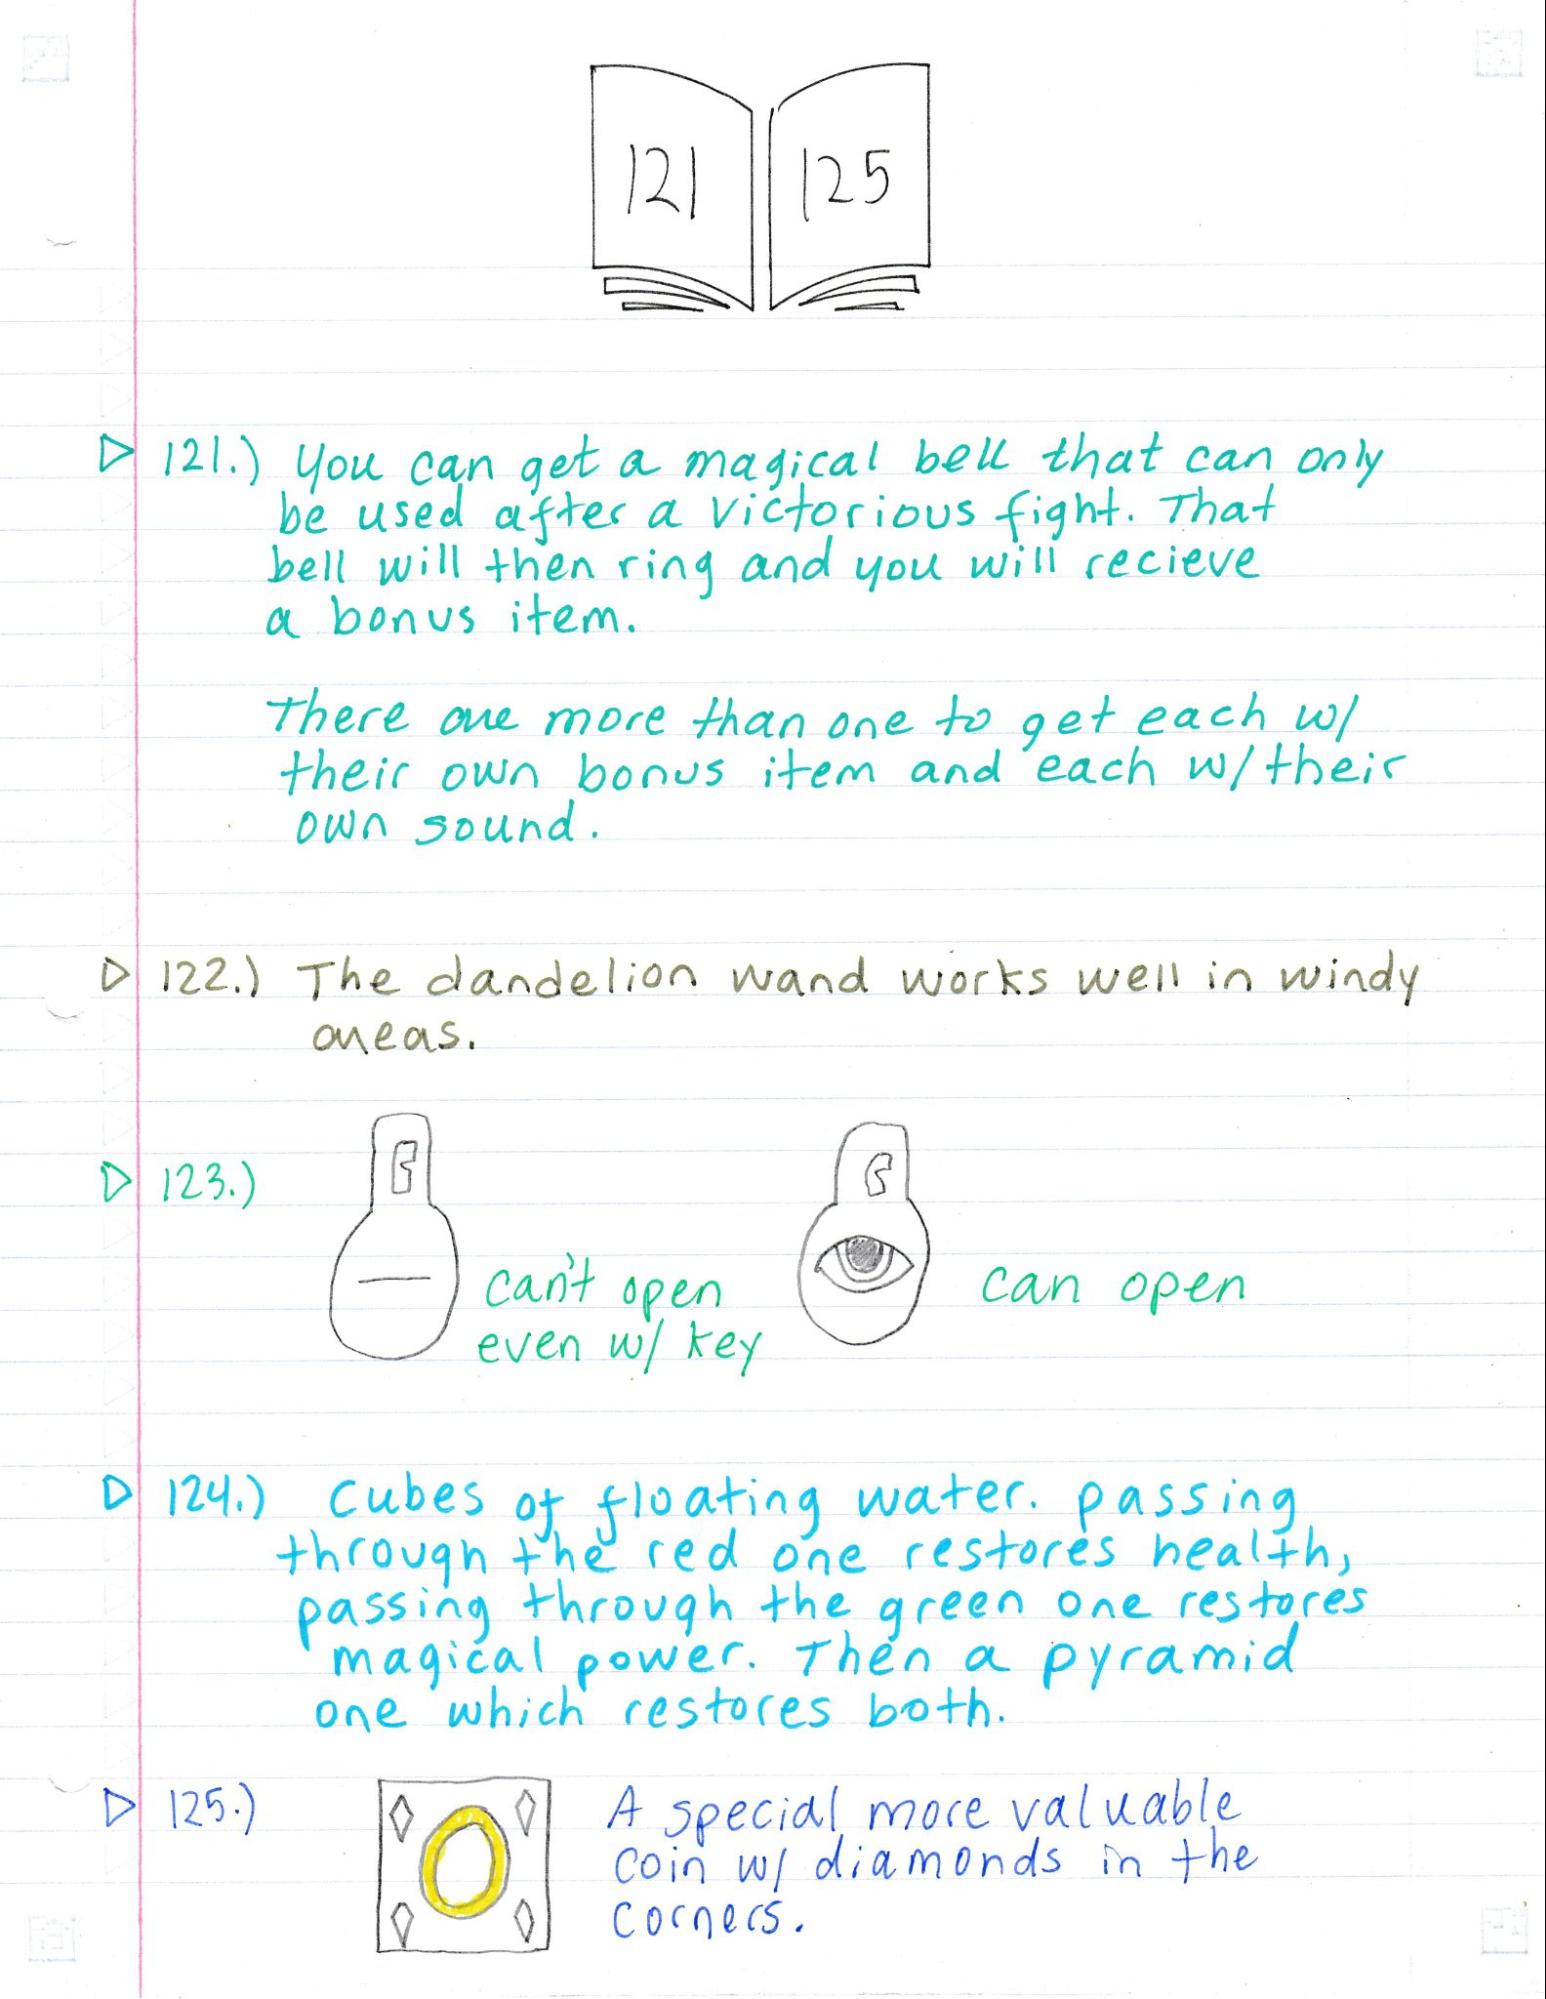 121 125
121.) You can get a magical bell that can only
be used after a victorious fight. That
bell will then ring and you will recieve
a bonus item.
There are more than one to get each w/
their own bonus item and each w/ their
own sound.
122.) The dandelion wand works well in windy
areas.
123.)
can't open
even w/ key
can open
124.) Cubes of floating water. passing
through the red one restores health,
passing through the green one restores
magical power. Then a pyramid
one which restores both.
125.) A special more valuable
coin w/ diamonds in the
corners.